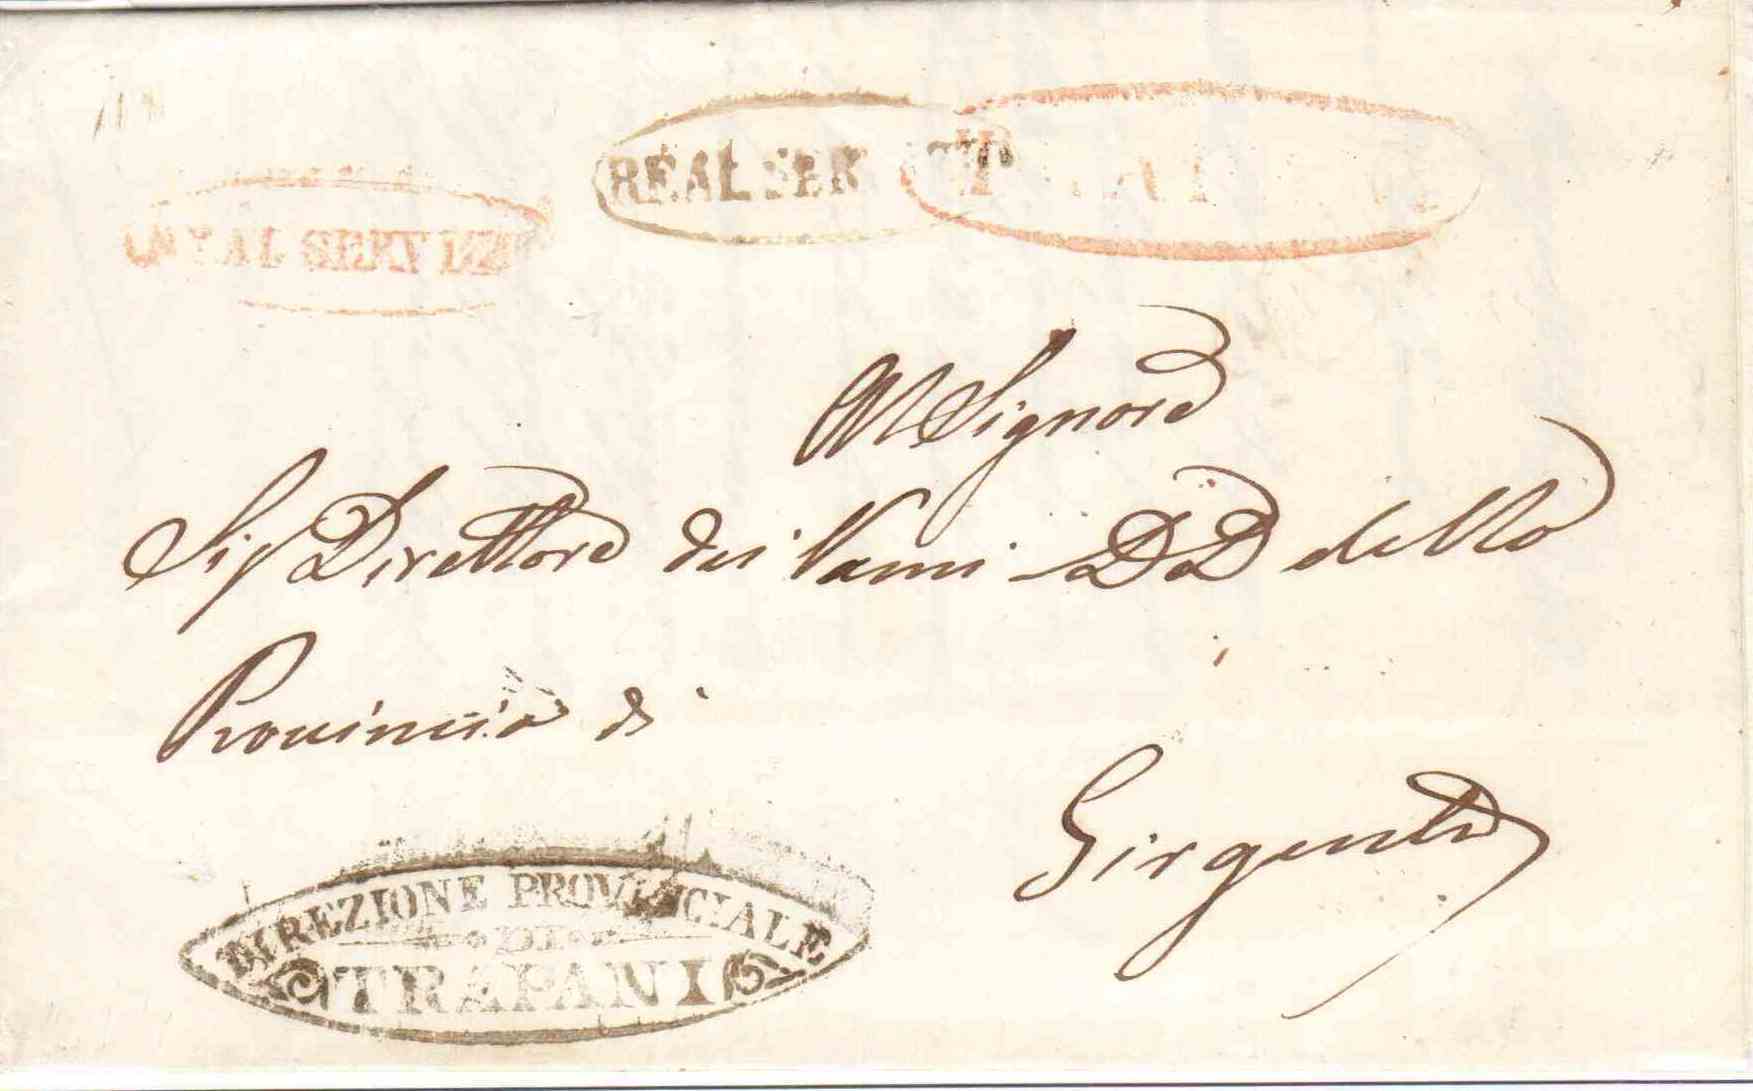 REAL SER
REAL SERVIZ
Al Signore
Sig Direttore dei Rami D D della
Provincia di
Girgenti
DIREZIONE PROVINCIALE
DI
TRAPANI